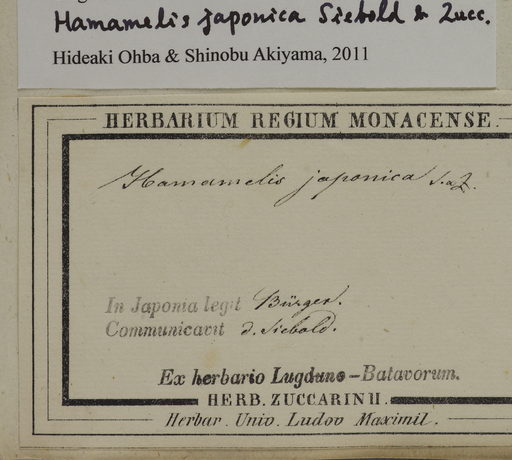 Hamamelis japonica Siebold & Zucc.
Hideaki Ohba & Shinobu Akiyama, 2011
HERBARIUM REGIUM MONACENSE.
Hamamelis japonica S. a Z.
In Japonia legit Bürger.
Communicavit d. Siebold.
Ex herbario Lugduno-Batavorum.
HERB. ZUCCARINII.
Herbar. Univ. Ludov Maximil.